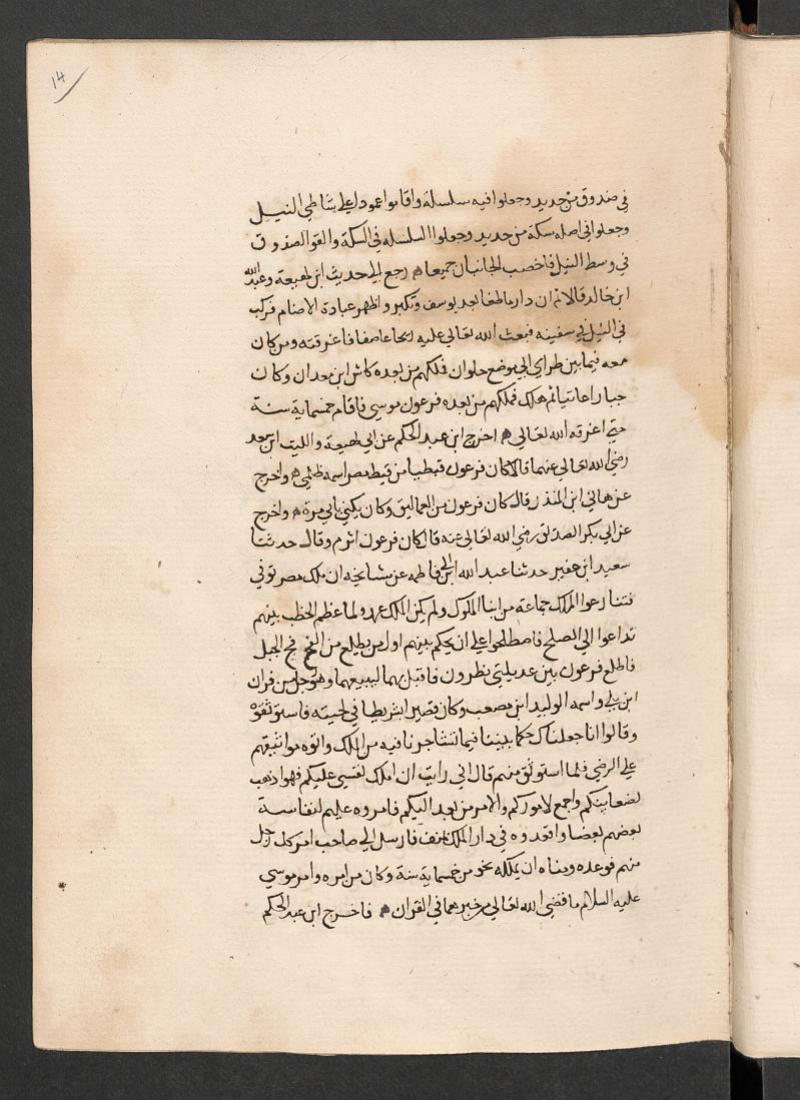 14
في صندوق من حديد وجعلوا فيه سلسلة واقاموا عمودا علي شاطي النيل
وجعلوا في اصله سكة من حديد وجعلوا السلسله في السكة والقوا الصندوق
في وسط النيل فاخصب الجانبان جميعا ه رجع الي حديث ابن لهيعة وعبد الله
ابن خالد قالا ثم ان دارما طغا بعد يوسف وتكبر واظهر عبادة الاصنام فركب
في النيل في سفينه فبعث الله تعالي عليه ريحا عاصفا فاغرقته ومن كان
معه فيما بين طرا الي موضع حلوان فملكهم من بعده كاشر ابن معدان وكان
جبارا عاتيا ثم هلك فملكهم من بعده فرعون موسي فاقام خمسماية سنة
حتي اغرقه الله تعالي ه اخرج ابن عبد الحكم عن ابي لهيعة والليث ابن سعد
رضي الله تعالي عنهما قالا كان فرعون قبطيا من قبط مصر اسمه ظلمي ه واخرج
عن هاني ابن المنذر قال كان فرعون من العماليق وكان يكني بابي مرة ه واخرج
عن ابي بكر الصديق رضي الله تعالي عنه قال كان فرعون اثرم وقال حدثنا
سعيد ابن عفير حدثنا عبد الله ابن ابي فاطمه عن مشايخه ان ملك مصر توفي
فتنازعوا الملك جماعة من ابنا الملوك ولم يكن الملك عهد ولما عظم الخطب بينهم
تداعوا الي الصلح فاصطلحوا علي ان يحكم بينهم اول من يطلع من الفج فج الجبل
فاطلع فرعون بين عديلتي نطرون قد اقبل بهما ليبيعهما وهو رجل من فران
ابن بلي واسمه الوليد ابن مصعب وكان قصيرا ابرش يطا في لحيته فاستوثقوه
وقالوا انا جعلناك حكما بيننا فيما تشاجرنا فيه من الملك واتوه مواثيقهم
علي الرضي فلما استوثق منهم قال اني رايت ان املك نفسي عليكم فهو اذهب
لضغاينكم واجمع لاموركم والامر من بعد اليكم فامروه عليهم لنفاسة
بعضهم بعضا واقعدوه في دار الملك بمنف فارسل الي صاحب امر كل رجل
منهم فوعده ومناه ان يملكه نحو من خمساية سنة وكان من امره وامر موسي
عليه السلام ما قضي الله تعالي من خبرهما في القران ه فاخرج ابن عبد الحكم